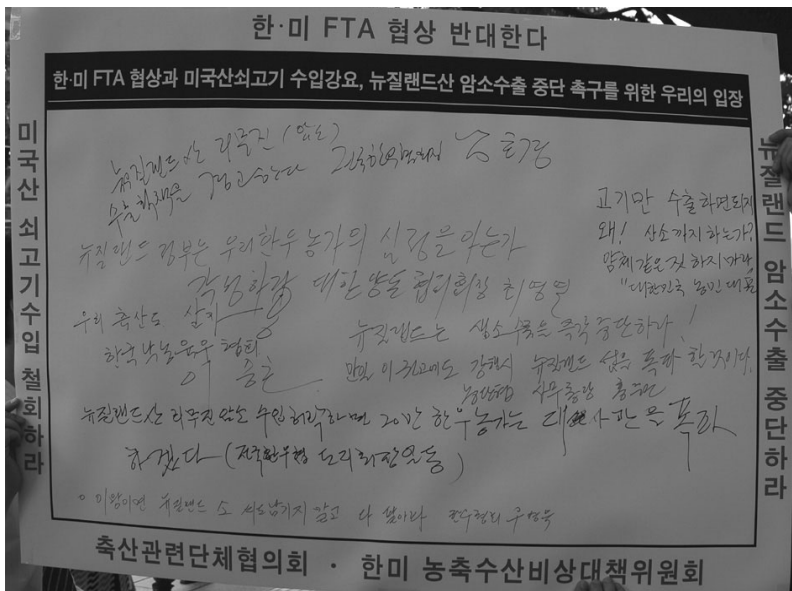 한·미 FTA 협상 반대한다
한·미 FTA 협상과 미국산쇠고기 수입강요, 뉴질랜드산 암소수출 중단 촉구를 위한 우리의 입장
미국산 쇠고기수입 철회하라
뉴질랜드 암소수출 중단하라
뉴질랜드산 리무진 (암소)
수출 정책을 경고한다
고기만 수출하면되지
왜! 산소까지하는가?
얌체같은짓 하지마라
"대한민국 농민대표
뉴질랜드 정부는 우리한우농가의 실정을 아는가
각성하라 대한양돈협회회장 최영열
우리 축산도 살자
한국낙농육우협회
이승호
뉴질랜드는 생소수출을 즉각중단하라!
만일 이 경고에도 강행시 뉴질랜드 폭파 할것이다
뉴질랜드산 리무진암소 수입허락하면 20만 한우농가는 대사관을 폭파
하겠다 (전국한우협 도지회장일동)
○ 이왕이면 뉴질랜드 소 씨도남기지 말고 다 팔아라
축산관련단체협의회 · 한미 농축수산비상대책위원회